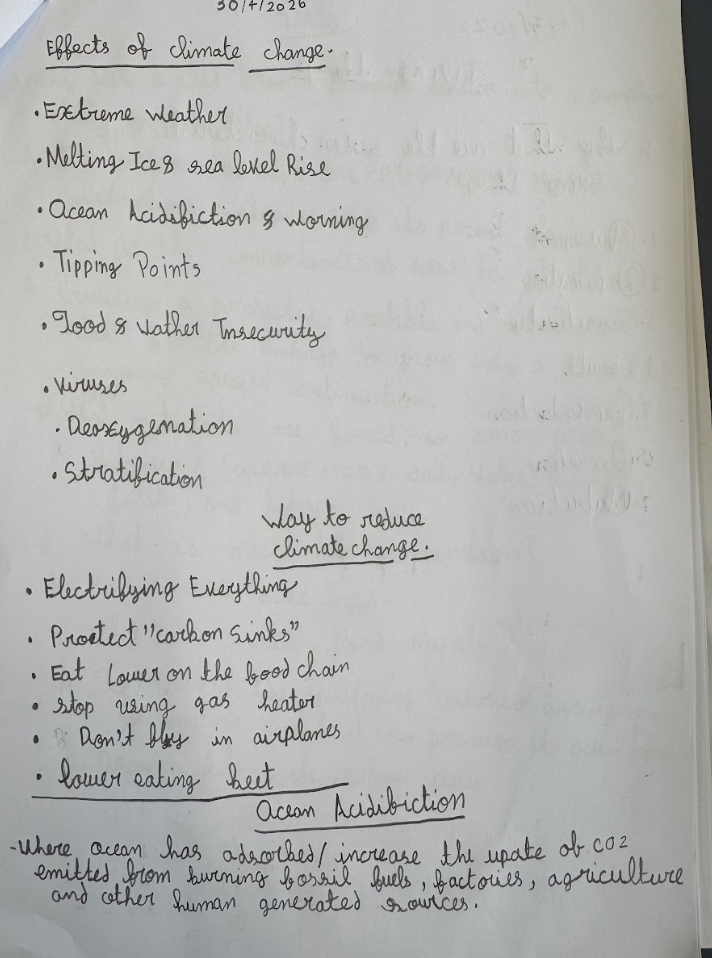 30/4/2026
Effects of climate change.
• Extreme weather
• Melting Ice & sea level Rise
• Ocean Acidifiction & Worning
• Tipping Points
• Food & Wather Insecurity
• Viruses
• Deoxygenation
• Stratification
Way to reduce
climate change.
• Electrifying Everything
• Proctect "carbon sinks"
• Eat Lower on the food chain
• stop using gas heater
• Don't fly in airplanes
• lower eating beet
Ocean Acidifiction
- Where ocean has adsorbed/increase the upate of CO2
emitted from burning fossil fuels, factories, agriculture
and other human generated sources.